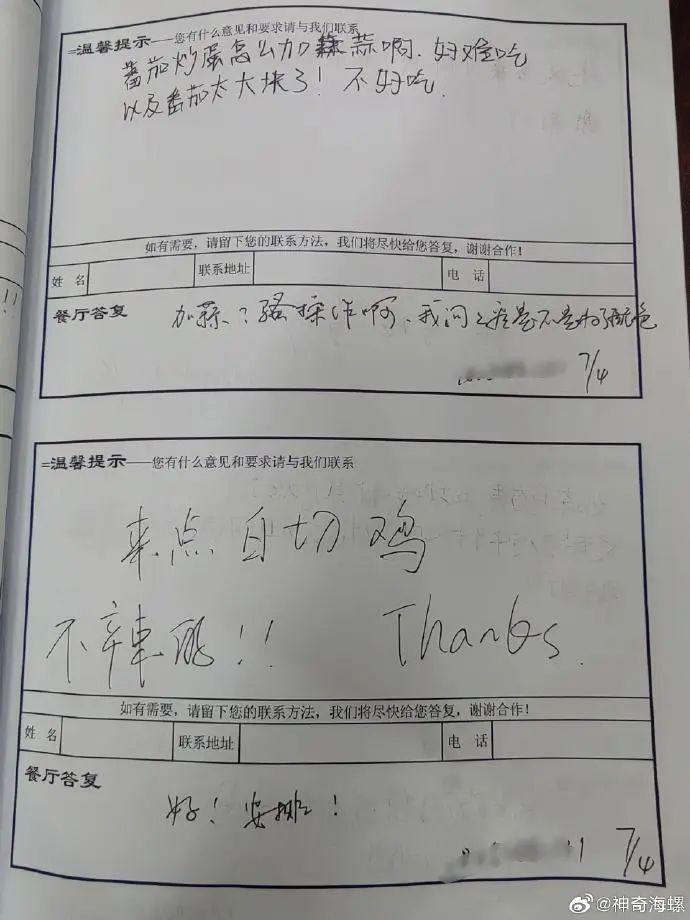 =温馨提示——您有什么意见和要求请与我们联系
蕃茄炒蛋怎么加蒜啊.好难吃
以及番茄太大块了！不好吃.
如有需要，请留下您的联系方法，我们将尽快给您答复，谢谢合作！
姓 名 联系地址 电 话
餐厅答复
加蒜？骚操作啊，我问之后是不是为了配色
7/4
=温馨提示——您有什么意见和要求请与我们联系
来点白切鸡
不辣哦!! Thanks.
如有需要，请留下您的联系方法，我们将尽快给您答复，谢谢合作！
姓 名 联系地址 电 话
餐厅答复
好！安排！
7/4
@神奇海螺